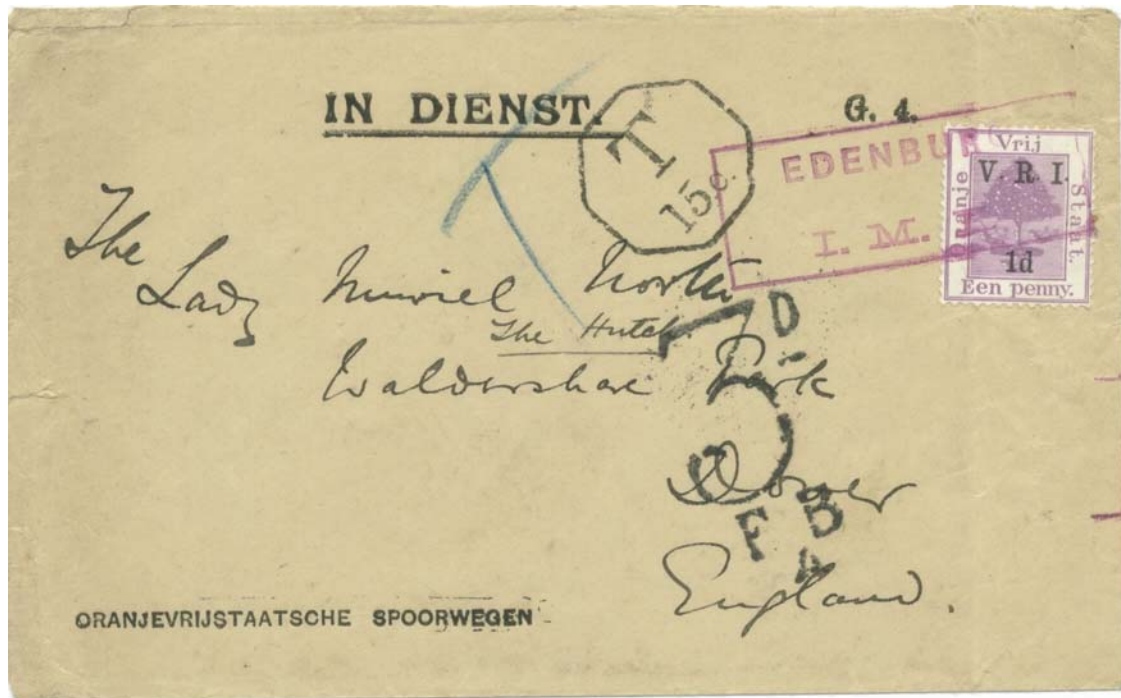 IN DIENST.
G. 4.
T
15c.
EDENBUR
I. M.
Vrij
Oranje
Staat.
V. R. I.
1d
Een penny.
The
Lady Muriel North
The Hutch.
Waldershare Park
Dover
England.
5D.
F B
ORANJEVRIJSTAATSCHE SPOORWEGEN